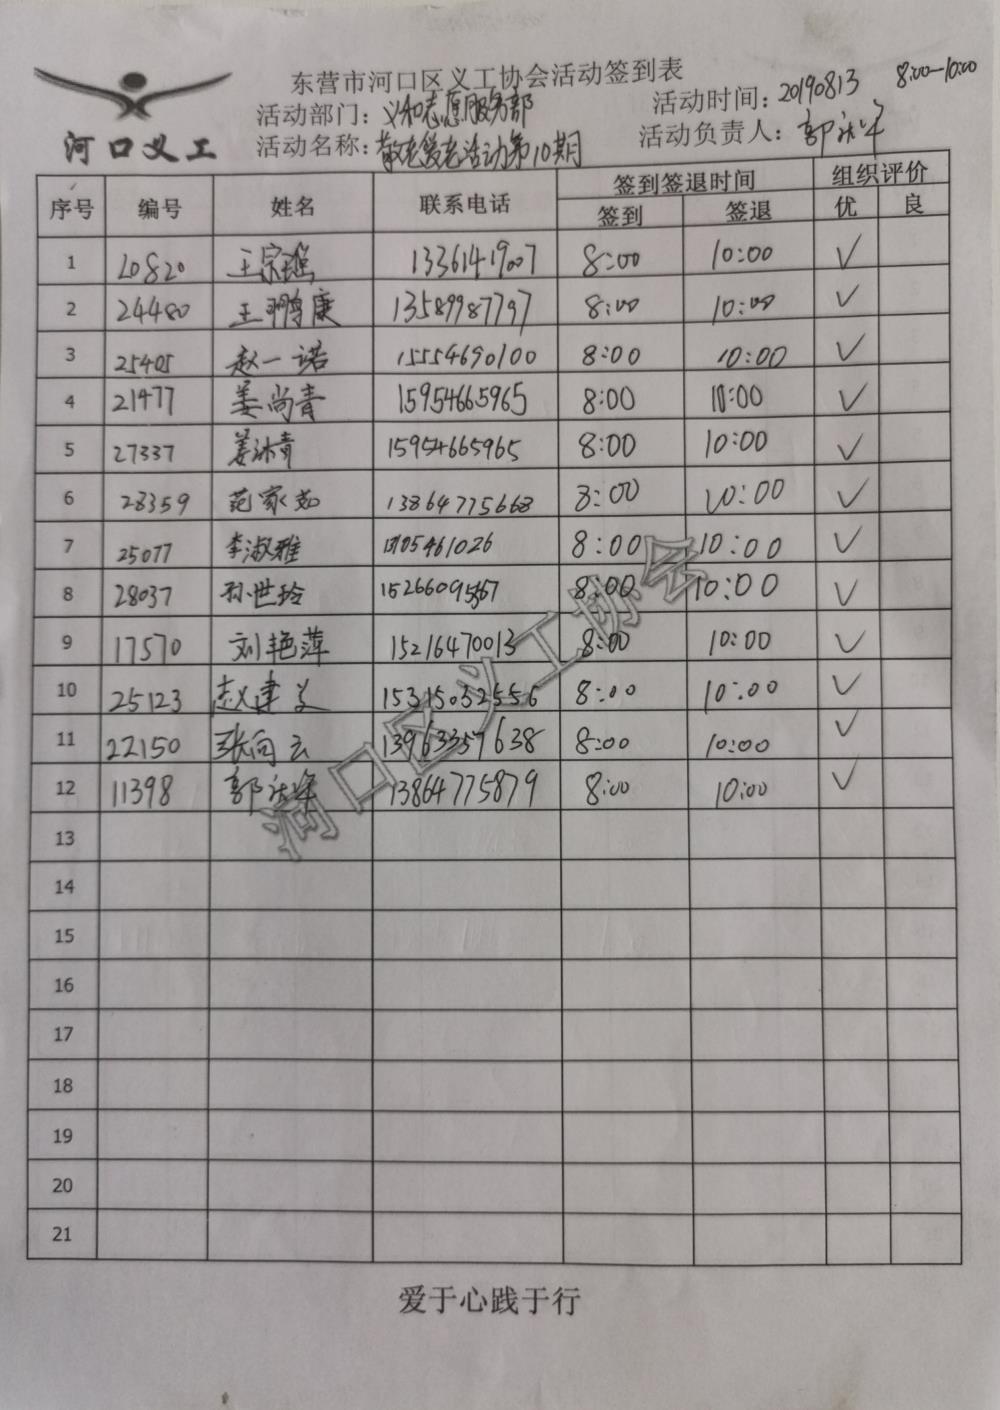 东营市河口区义工协会活动签到表
河口义工
活动部门：义和志愿服务部
活动时间：20190813 8:00-10:00
活动名称：敬老爱老活动第10期
活动负责人：郭
序号 编号 姓名 联系电话 签到签退时间 组织评价
签到 签退 优 良
1 20820 王宗 13361419007 8:00 10:00 ✓
2 24480 王鹏康 13589987797 8:00 10:00 ✓
3 25405 赵一诺 15554690100 8:00 10:00 ✓
4 21477 姜尚青 15954665965 8:00 10:00 ✓
5 27337 姜沐青 15954665965 8:00 10:00 ✓
6 28359 范家如 13864775668 8:00 10:00 ✓
7 25077 李淑雅 8:00 10:00 ✓
8 28037 孙世玲 8:00 10:00 ✓
9 17570 刘艳萍 15216470013 8:00 10:00 ✓
10 25123 赵建 15315032556 8:00 10:00 ✓
11 22150 张向云 13963357638 8:00 10:00 ✓
12 11398 郭 13864775879 8:00 10:00 ✓
13
14
15
16
17
18
19
20
21
河口区义工协会
爱于心践于行